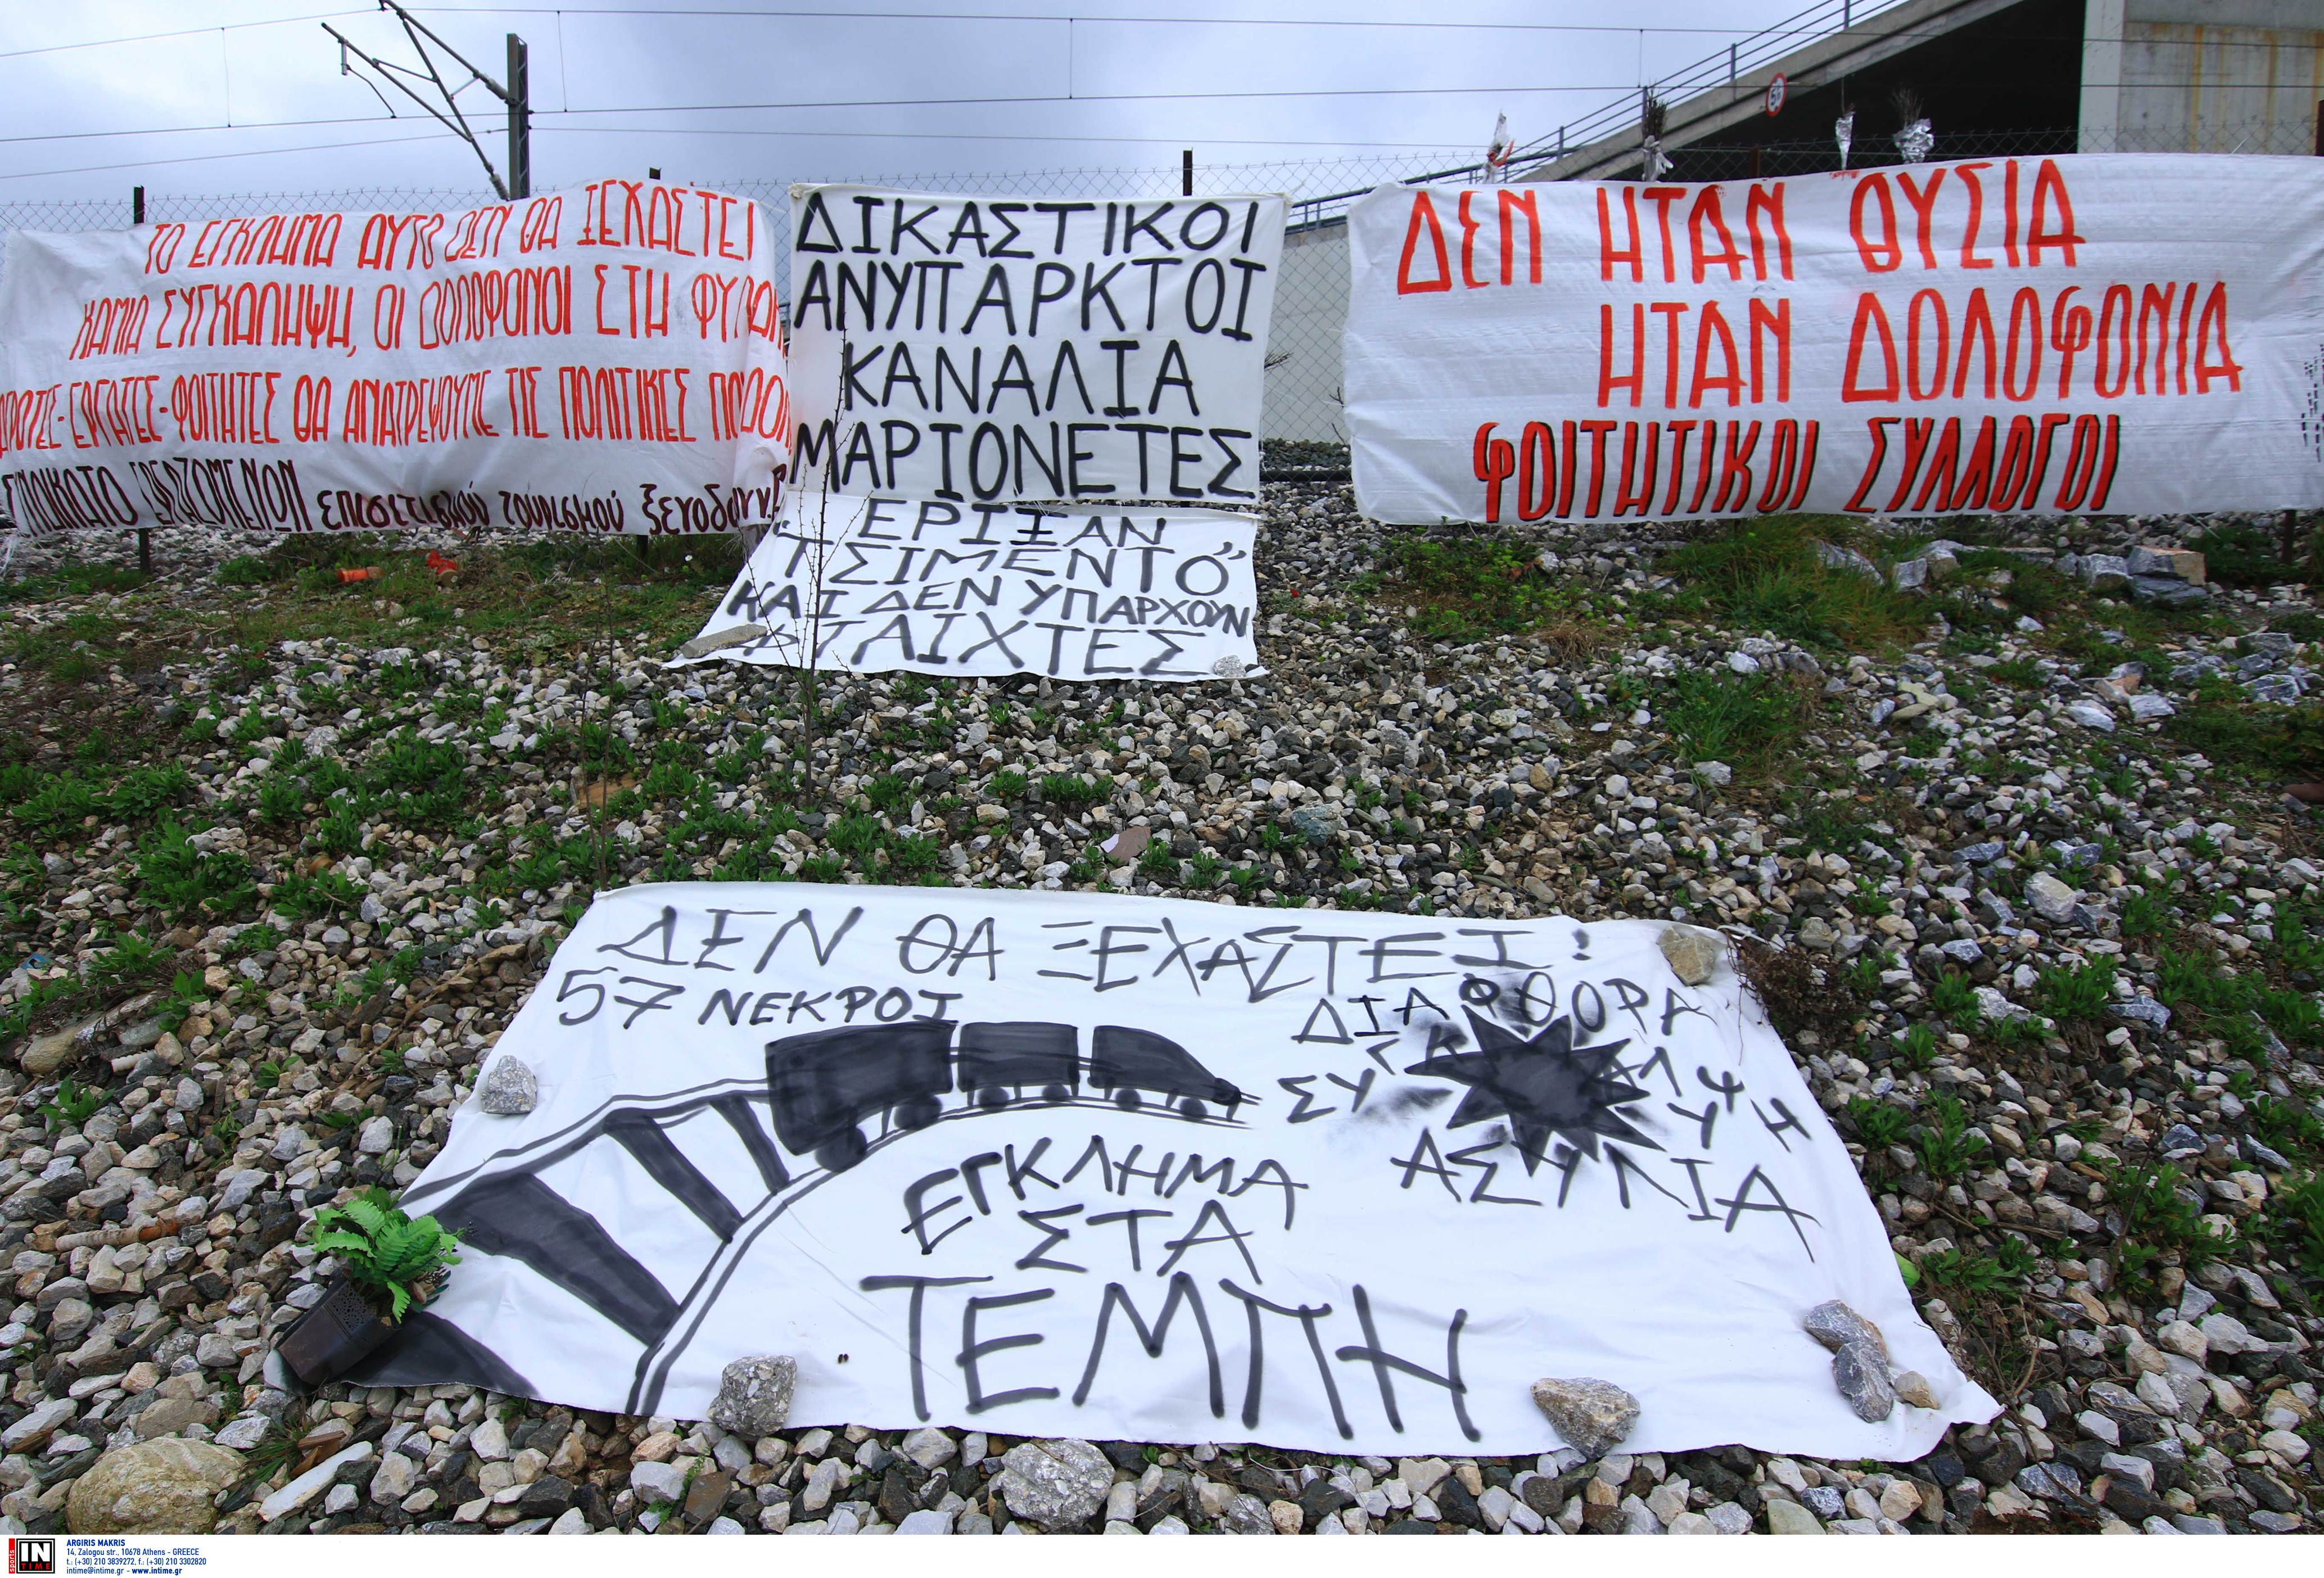 ΤΟ ΕΓΚΛΗΜΑ ΑΥΤΟ ΔΕΝ ΘΑ ΞΕΧΑΣΤΕΙ
ΚΑΜΙΑ ΣΥΓΚΑΛΗΨΗ, ΟΙ ΔΟΛΟΦΟΝΟΙ ΣΤΗ
ΕΡΓΑΤΕΣ-ΦΟΙΤΗΤΕΣ ΘΑ ΑΝΑΤΡΕΨΟΥΜΕ ΤΙΣ ΠΟΛΙΤΙΚΕΣ
ΕΡΓΑΖΟΜΕΝΩΝ επισιτισμού τουρισμού
ΔΙΚΑΣΤΙΚΟΙ
ΑΝΥΠΑΡΚΤΟΙ
ΚΑΝΑΛΙΑ
ΜΑΡΙΟΝΕΤΕΣ
ΕΡΙΞΑΝ
"ΤΣΙΜΕΝΤΟ"
ΚΑΙ ΔΕΝ ΥΠΑΡΧΟΥΝ
ΦΤΑΙΧΤΕΣ
ΔΕΝ ΗΤΑΝ ΘΥΣΙΑ
ΗΤΑΝ ΔΟΛΟΦΟΝΙΑ
ΦΟΙΤΗΤΙΚΟΙ ΣΥΛΛΟΓΟΙ
50
ΔΕΝ ΘΑ ΞΕΧΑΣΤΕΙ:
57 ΝΕΚΡΟΙ
ΔΙΑΦΘΟΡΑ
ΣΥΓΚΑΛΥΨΗ
ΑΣΥΛΙΑ
ΕΓΚΛΗΜΑ
ΣΤΑ
ΤΕΜΠΗ
sports
IN
TIME
ARGIRIS MAKRIS
14, Zalogou str., 10678 Athens - GREECE
t.: (+30) 210 3839272, f.: (+30) 210 3302820
intime@intime.gr - www.intime.gr